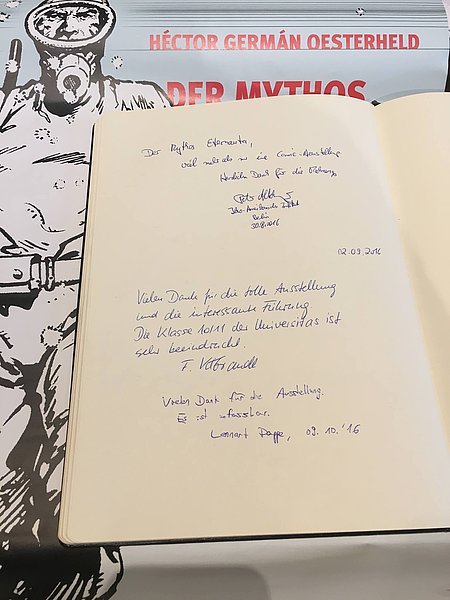 HÉCTOR GERMÁN OESTERHELD
DER MYTHOS
Der Mythos Eternauta,
viel mehr als nur eine Comic-Ausstellung
Herzlichen Dank für die
Ibero-Amerikanisches Institut
Berlin
30.8.2016
02.09.2016
Vielen Dank für die tolle Ausstellung
und die interessante Führung.
Die Klasse 10/11 der Universitas ist
sehr beeindruckt.
Vielen Dank für die Ausstellung.
Es ist unfassbar.
Lennart Poppe, 09.10.'16